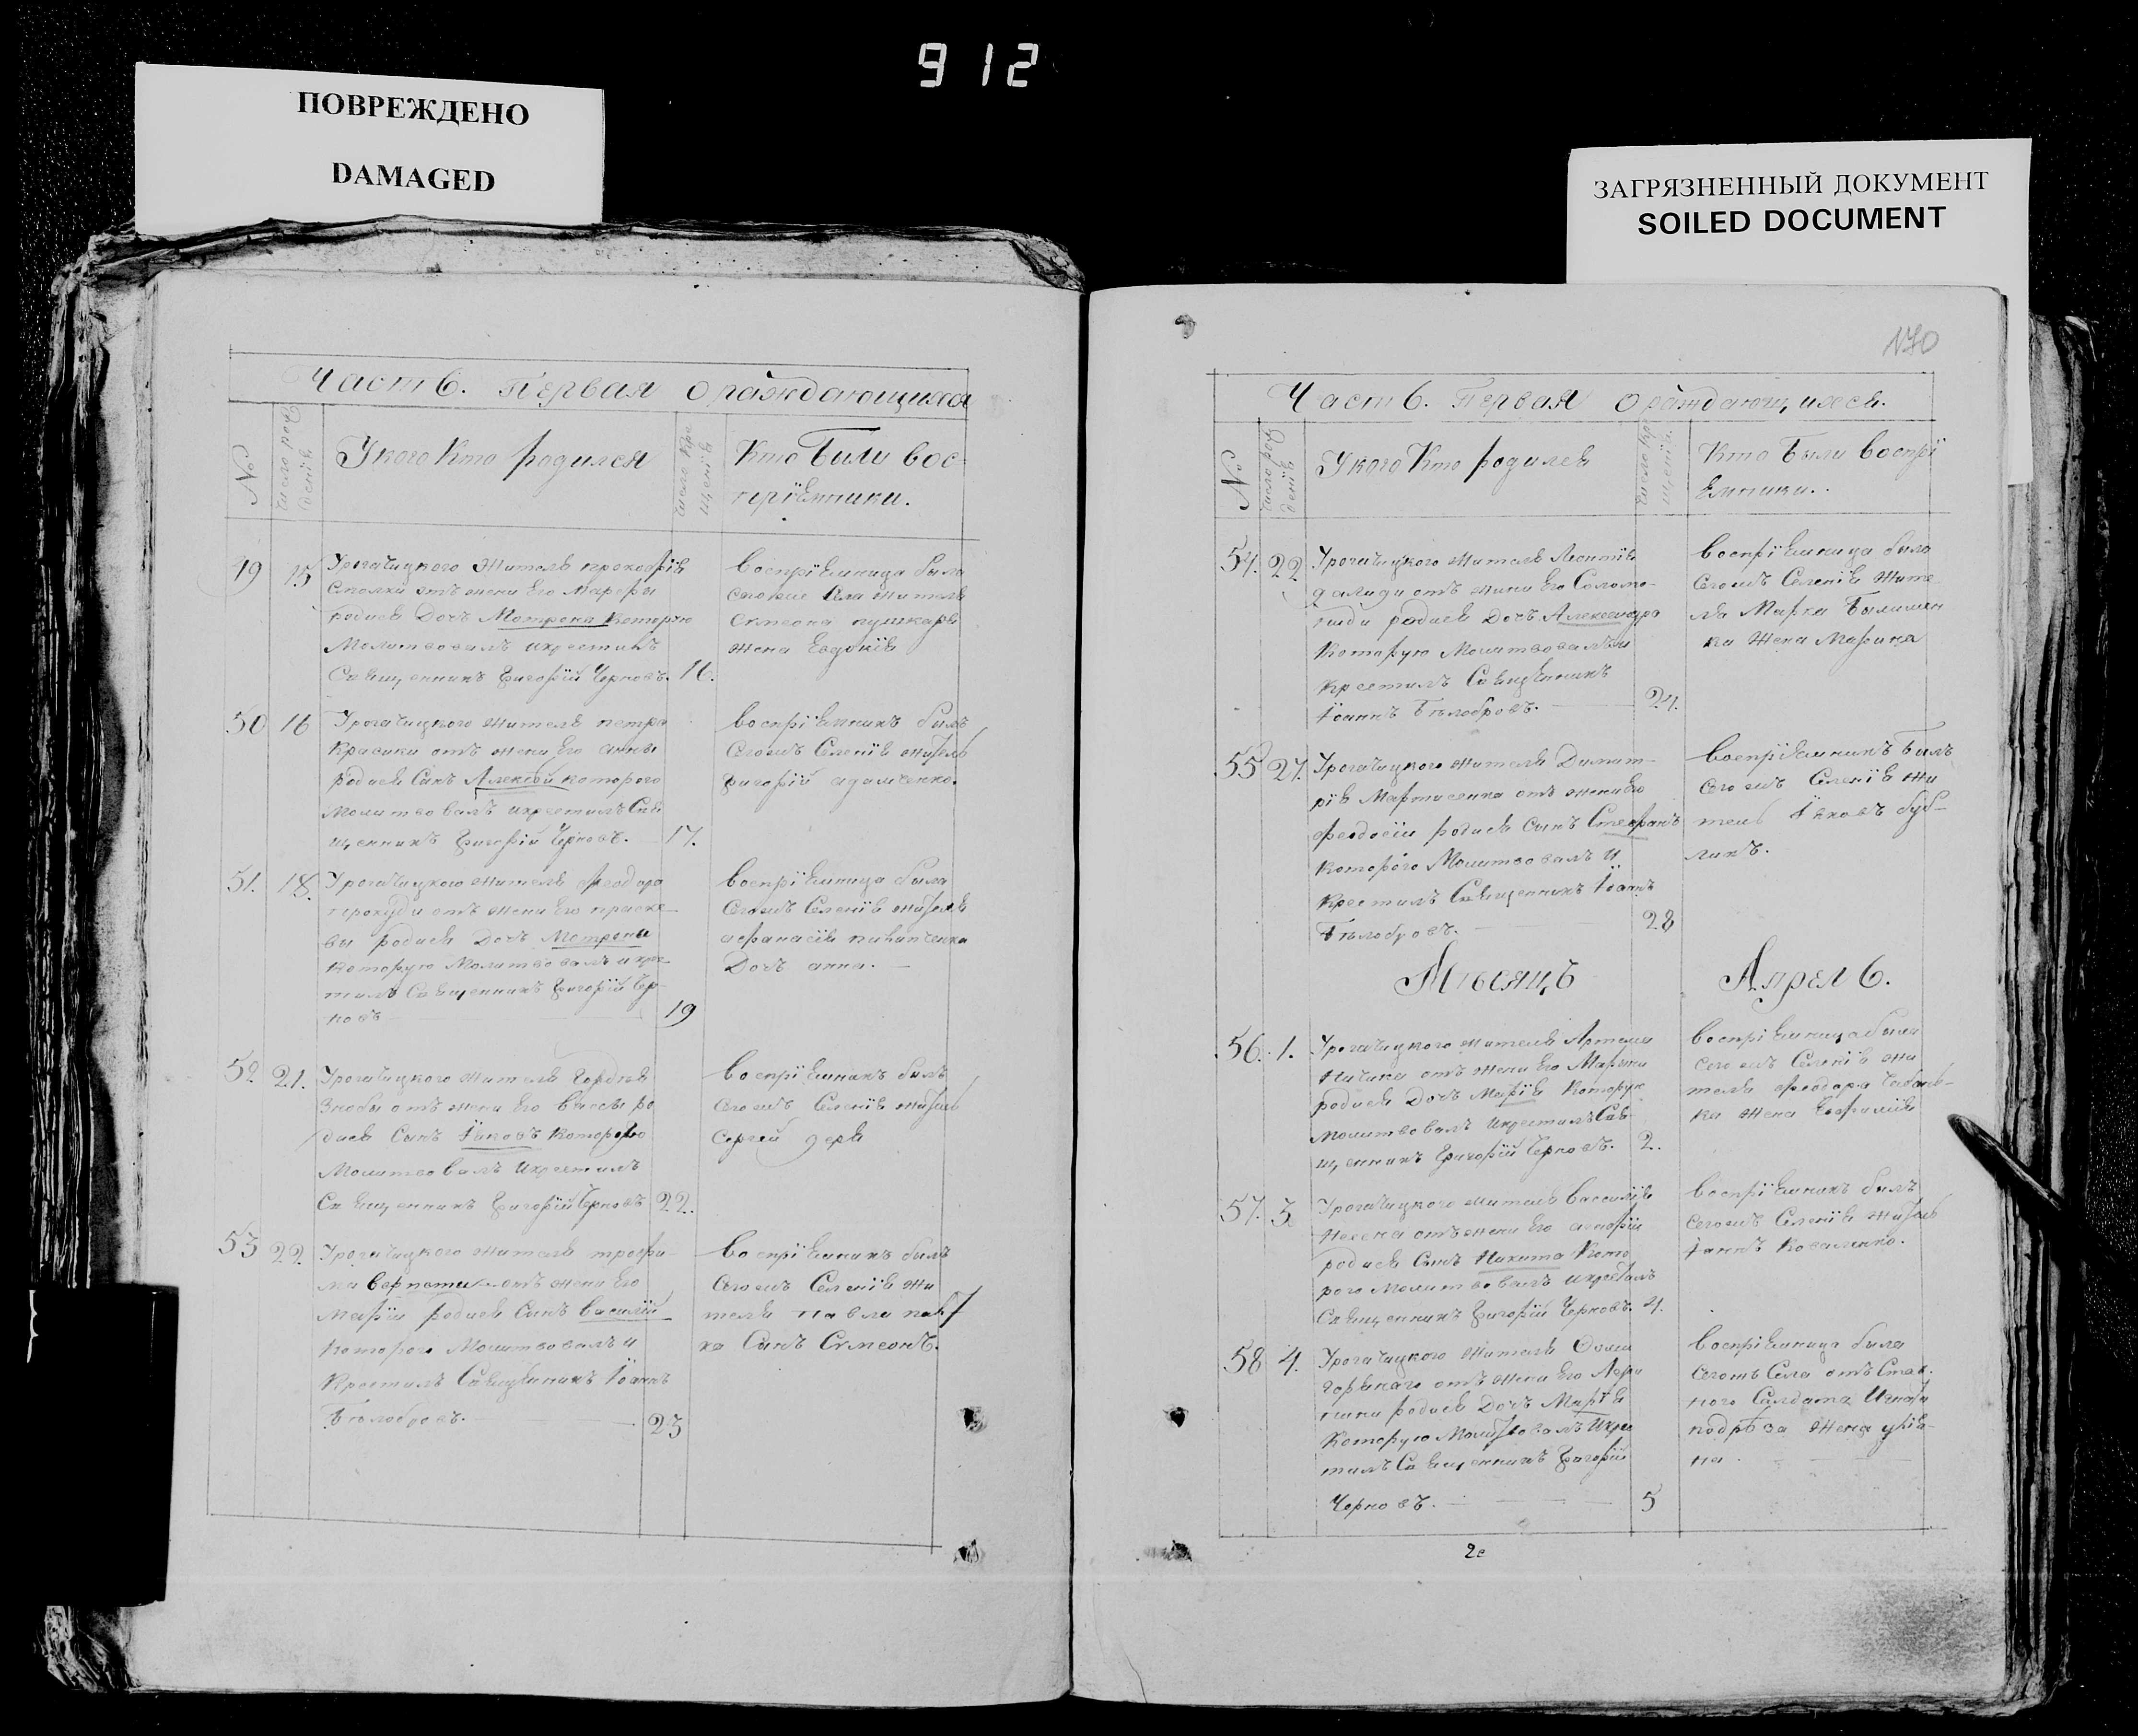 912
ПОВРЕЖДЕНО
DAMAGED
ЗАГРЯЗНЕННЫЙ ДОКУМЕНТ
SOILED DOCUMENT
Часть. Первая о раждающихся
№
Число рож
денія
У кого Кто родился
Число Кре
щенія
Кто Били вос-
пріемники.
49 15 Урогачицкого Жителя прокофія
отъ жени Его Марфы
родися Дочъ Мотрона Которую
Молитвовалъ икрестилъ
Священникъ Григорій Черновъ. 16.
воспріемница была
Сегоже Села жителя
Симеона пушкаря
жена Евдокія
50 16 Урогачицкого жителя петра
Красики отъ жени Его анны
родися Синъ Алексей которого
молитвовалъ икрестилъ Свя
щенникъ Григорій Черновъ. 17.
воспріемникъ билъ
Сегожъ Селенія житель
Григорій адамченко.
51. 18. Урогачицкого жителя феодора
отъ жени Его праске-
вы родися Дочъ Мотрона
которую Молитвовалъ икре-
тилъ Священникъ Григорій Чер-
новъ 19
воспріемница била
Сегожъ Селенія жителя
афанасія
Дочъ анна.
52 21. Урогачицкого жителя Гордея
Знобы отъ жени Его Васси ро
дися Синъ Іяковъ Которого
Молитвовалъ икрестилъ
Священникъ Григорій Черновъ 22.
воспріемникъ билъ
Сегожъ Селенія житель
Сергей
53 22. Урогачицкого жителя трофи-
ма отъ жени Его
Маріи родися Синъ Василій
Которого Молитвовалъ и
Крестилъ Священникъ Іоаннъ
Белобровъ. 23
воспріемникъ билъ
Сегожъ Селенія жи
теля Павла
ка Синъ Симеонъ.
170
Часть. Первая о раждающихся.
№
Число рож
денія
У кого Кто родился
Число Кре
щенія.
Кто Были воспрі
емники.
54. 22 Урогачицкого жителя Леонтія
далиди отъ жини Его Соломо-
ниди родися Дочъ Александра
Которую Молитвовалъ и
Крестилъ Священникъ
Іоаннъ Белобровъ. 24.
воспріемница била
Сегожъ Селенія жите
ля Марка
ка жена Марина
55 27. Урогачицкого жителя Димит-
рія Мартиенка отъ жени Его
феодосіи родися Синъ Стефанъ
которого Молитвовалъ и
Крестилъ Священникъ Іоаннъ
Белобровъ. 28
воспріемникъ билъ
Сегожъ Селенія жи
тель Іяковъ буб-
ликъ.
Месяцъ Апрель.
56. 1. Урогачицкого жителя Артема
отъ жени Его Марини
родися Дочъ Марія Которую
молитвовалъ икрестилъ Свя-
щенникъ Григорій Черновъ. 2.
воспріемница была
Сегожъ Селенія жи
теля феодора Чабань-
ка жена Евфимія
57. 3. Урогачицкого жителя Василія
отъ жени Его
родися Синъ Никита Кото
рого Молитвовалъ икрестилъ
Священникъ Григорій Черновъ. 4.
воспріемникъ билъ
Сегожъ Селенія житель
Іаннъ Коваленко.
58 4. Урогачицкого жителя Фоми
отъ жени Его
родися Дочъ Марія
Которую Молитвовалъ икрес
тилъ Священникъ Григорій
Черновъ. 5
воспріемница била
Сегожъ Села отъ Став.
ного Салдата Игната
жена улія-
на.
2е